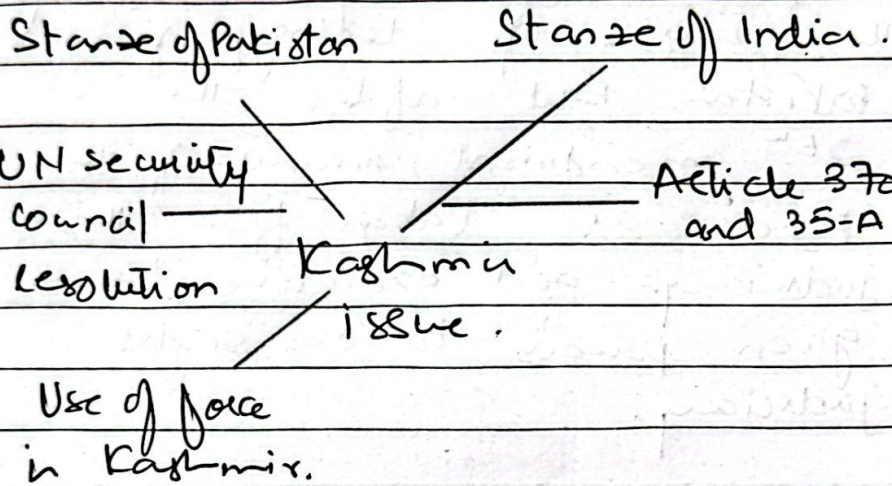 Stanze of Pakistan
Stanze of India.
UN security
council
resolution
Article 370
and 35-A
Kashmir
issue.
Use of force
in Kashmir.